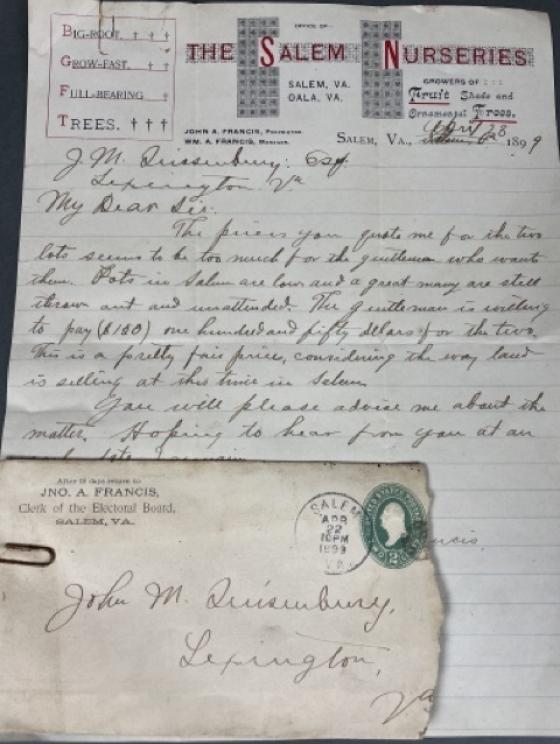 BIG-ROOT, † † †
GROW-FAST, † †
FULL-BEARING †
TREES. † † †
OFFICE OF
THE SALEM NURSERIES
SALEM, VA.
OALA, VA.
GROWERS OF : : :
Fruit Shade and
Ornamental Trees.
JOHN A. FRANCIS, PROPRIETOR.
WM. A. FRANCIS, MANAGER.
SALEM, VA., 1899
J. M. Quisenbury. Esq.
Lexington Va
My Dear Sir.
The prices you quote me for the two
lots seems to be too much for the gentleman who wants
them. Lots in Salem are low and a great many are still
thrown out and unattended. The gentleman is willing
to pay ($150) one hundred and fifty dollars for the two.
This is a pretty fair price, considering the way land
is selling at this time in Salem
You will please advise me about the
matter. Hoping to hear from you at an
After 10 days return to
JNO. A. FRANCIS,
Clerk of the Electoral Board,
SALEM, VA.
SALEM
APR
22
10PM
1899
VA.
UNITED STATES POSTAGE
2
John M. Quisenbury,
Lexington,
Va